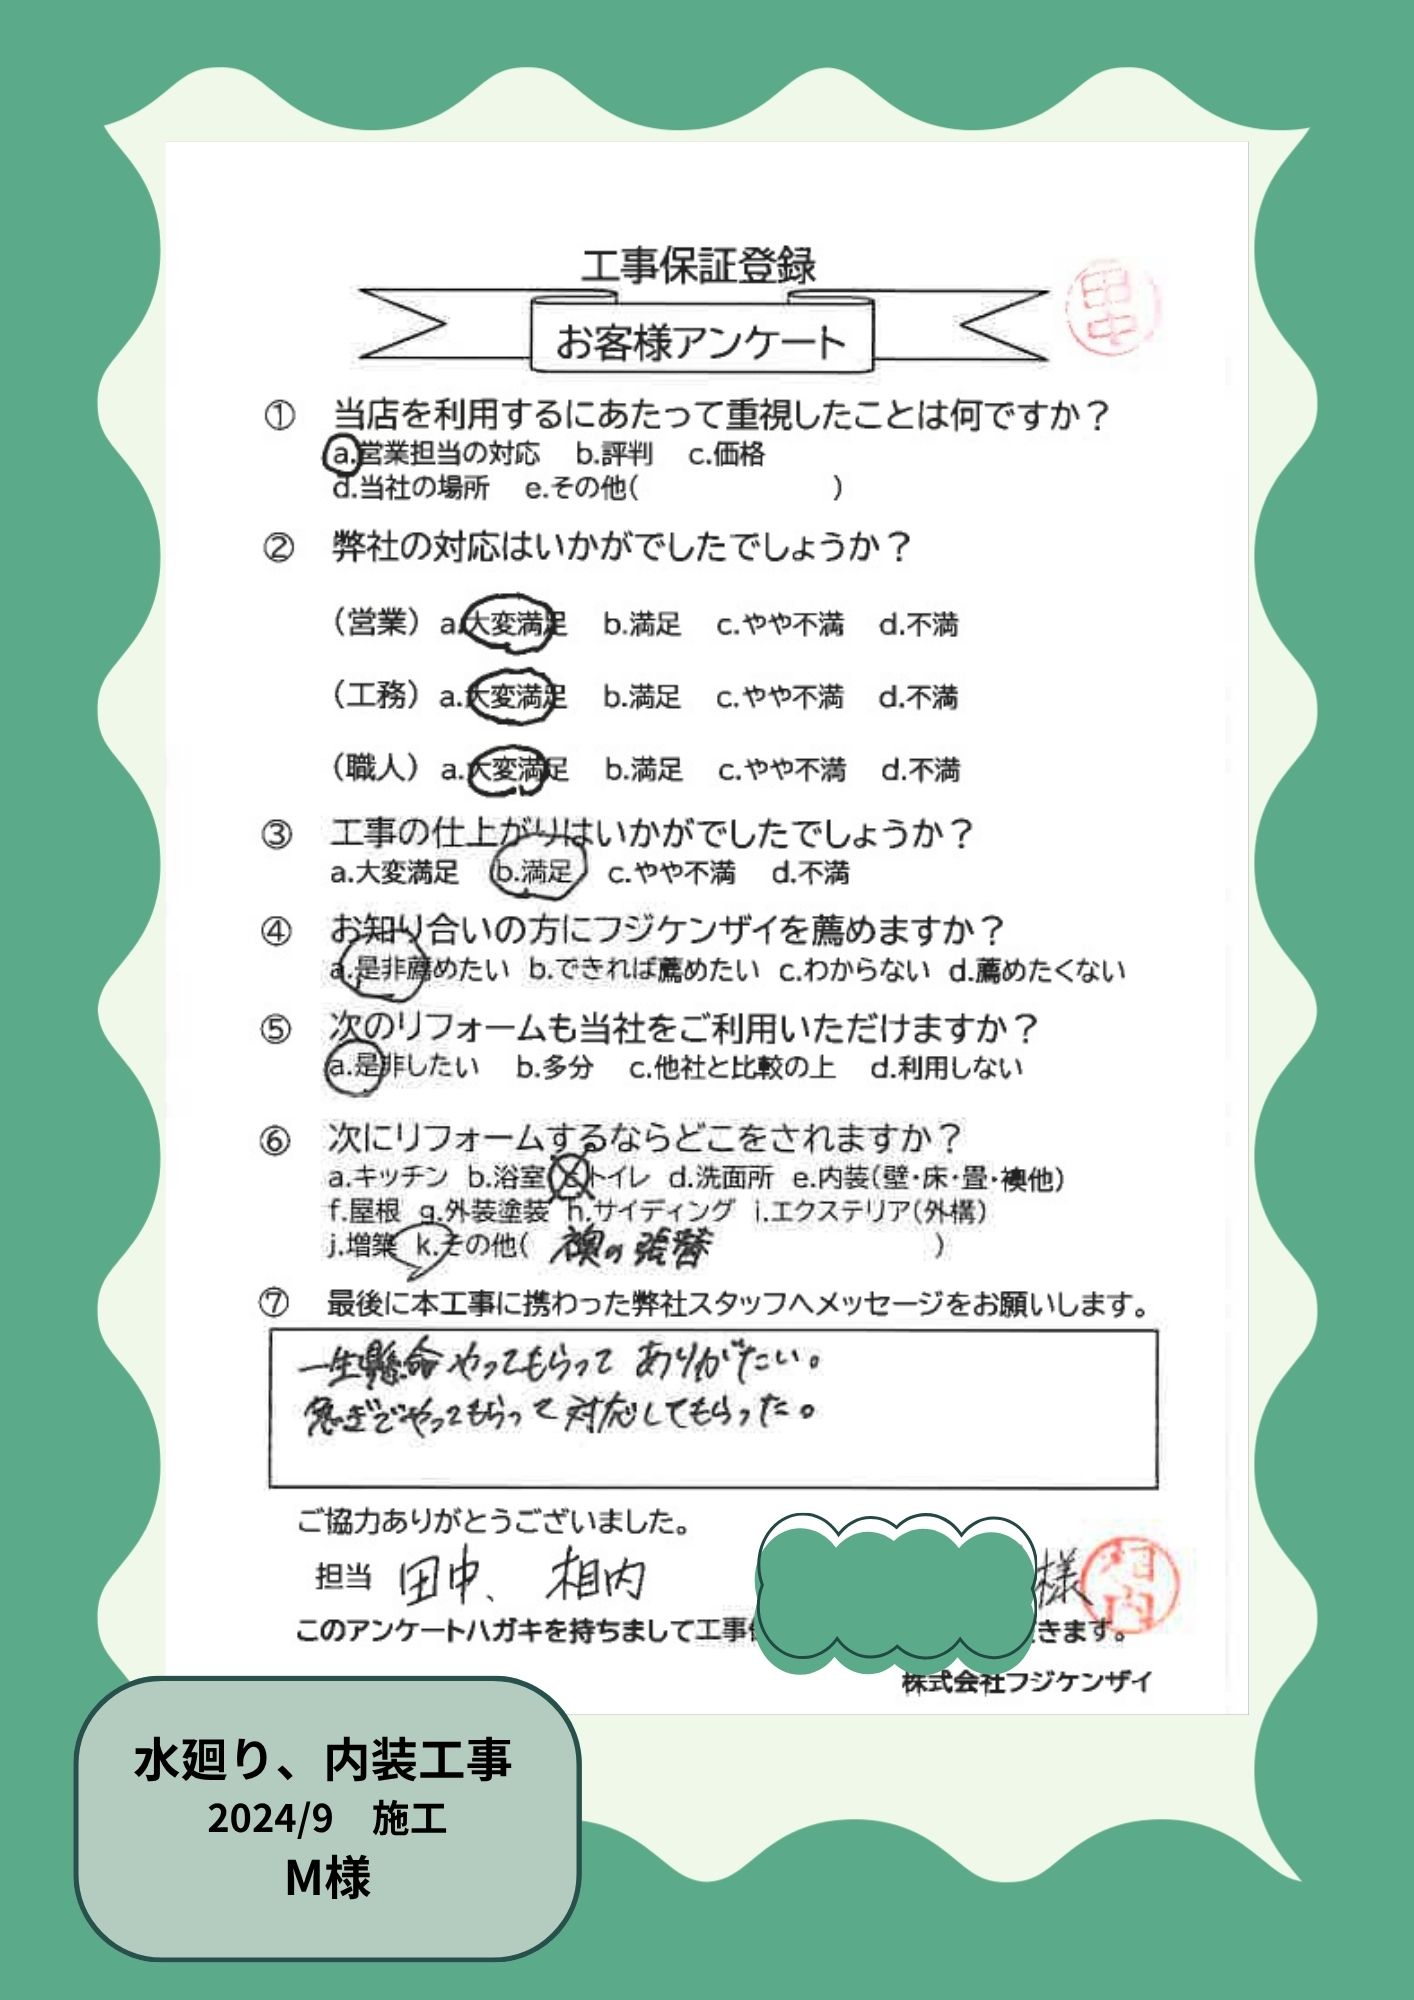 工事保証登録
お客様アンケート
田中
① 当店を利用するにあたって重視したことは何ですか？
a.営業担当の対応 b.評判 c.価格
d.当社の場所 e.その他( )
② 弊社の対応はいかがでしたでしょうか？
（営業） a.大変満足 b.満足 c.やや不満 d.不満
（工務） a.大変満足 b.満足 c.やや不満 d.不満
（職人） a.大変満足 b.満足 c.やや不満 d.不満
③ 工事の仕上がりはいかがでしたでしょうか？
a.大変満足 b.満足 c.やや不満 d.不満
④ お知り合いの方にフジケンザイを薦めますか？
a.是非薦めたい b.できれば薦めたい c.わからない d.薦めたくない
⑤ 次のリフォームも当社をご利用いただけますか？
a.是非したい b.多分 c.他社と比較の上 d.利用しない
⑥ 次にリフォームするならどこをされますか？
a.キッチン b.浴室 c.トイレ d.洗面所 e.内装(壁・床・畳・襖他)
f.屋根 g.外装塗装 h.サイディング i.エクステリア(外構)
j.増築 k.その他( 襖の張替 )
⑦ 最後に本工事に携わった弊社スタッフへメッセージをお願いします。
一生懸命やってもらって ありがたい。
急ぎでやってもらって対応してもらった。
ご協力ありがとうございました。
担当 田中、 相内 様
相内
このアンケートハガキを持ちまして工事 きます。
株式会社フジケンザイ
水廻り、内装工事
2024/9 施工
M様